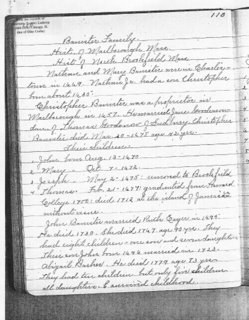 118
Banister Family
Hist. of Marlborough Mass
Hist of North Brookfield Mass
Nathan and Mary Banister were in Charles-
town in 1664. Nathan Jr. had a son Christopher
born about
Christopher Banister was a proprietor in
Marlborough in 1657. He married Jane Goodenow
daur of Thomas Goodenow of Sudbury. Christopher
Banister died Mar 30-1678 aged 42 years
Their children
1 John born Aug 13-1670
2 Mary - Oct 7-1672
3 Joseph - May 2-1675 - removed to Brookfield
4 Thomas - Feb 21-1677 graduated from Harvard
College 1700. died 1712 in the island of Jamaica
without issue
John Banister married Ruth Eager in 1695
He died 1730. She died 1767 aged 93 yrs. They
had eight children - one son and seven daughters
Their son John born 1698 married in 1722
Abigail Barker. He died 1772 aged 73 years
They had ten children but only five children
all daughters - survived childhood